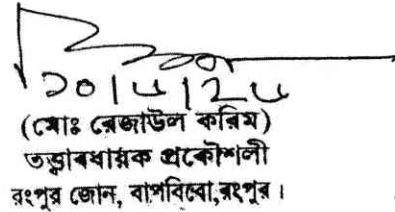 ১০|৬|২৬
(মোঃ রেজাউল করিম)
তত্ত্বাবধায়ক প্রকৌশলী
রংপুর জোন, বাপবিবো,রংপুর।